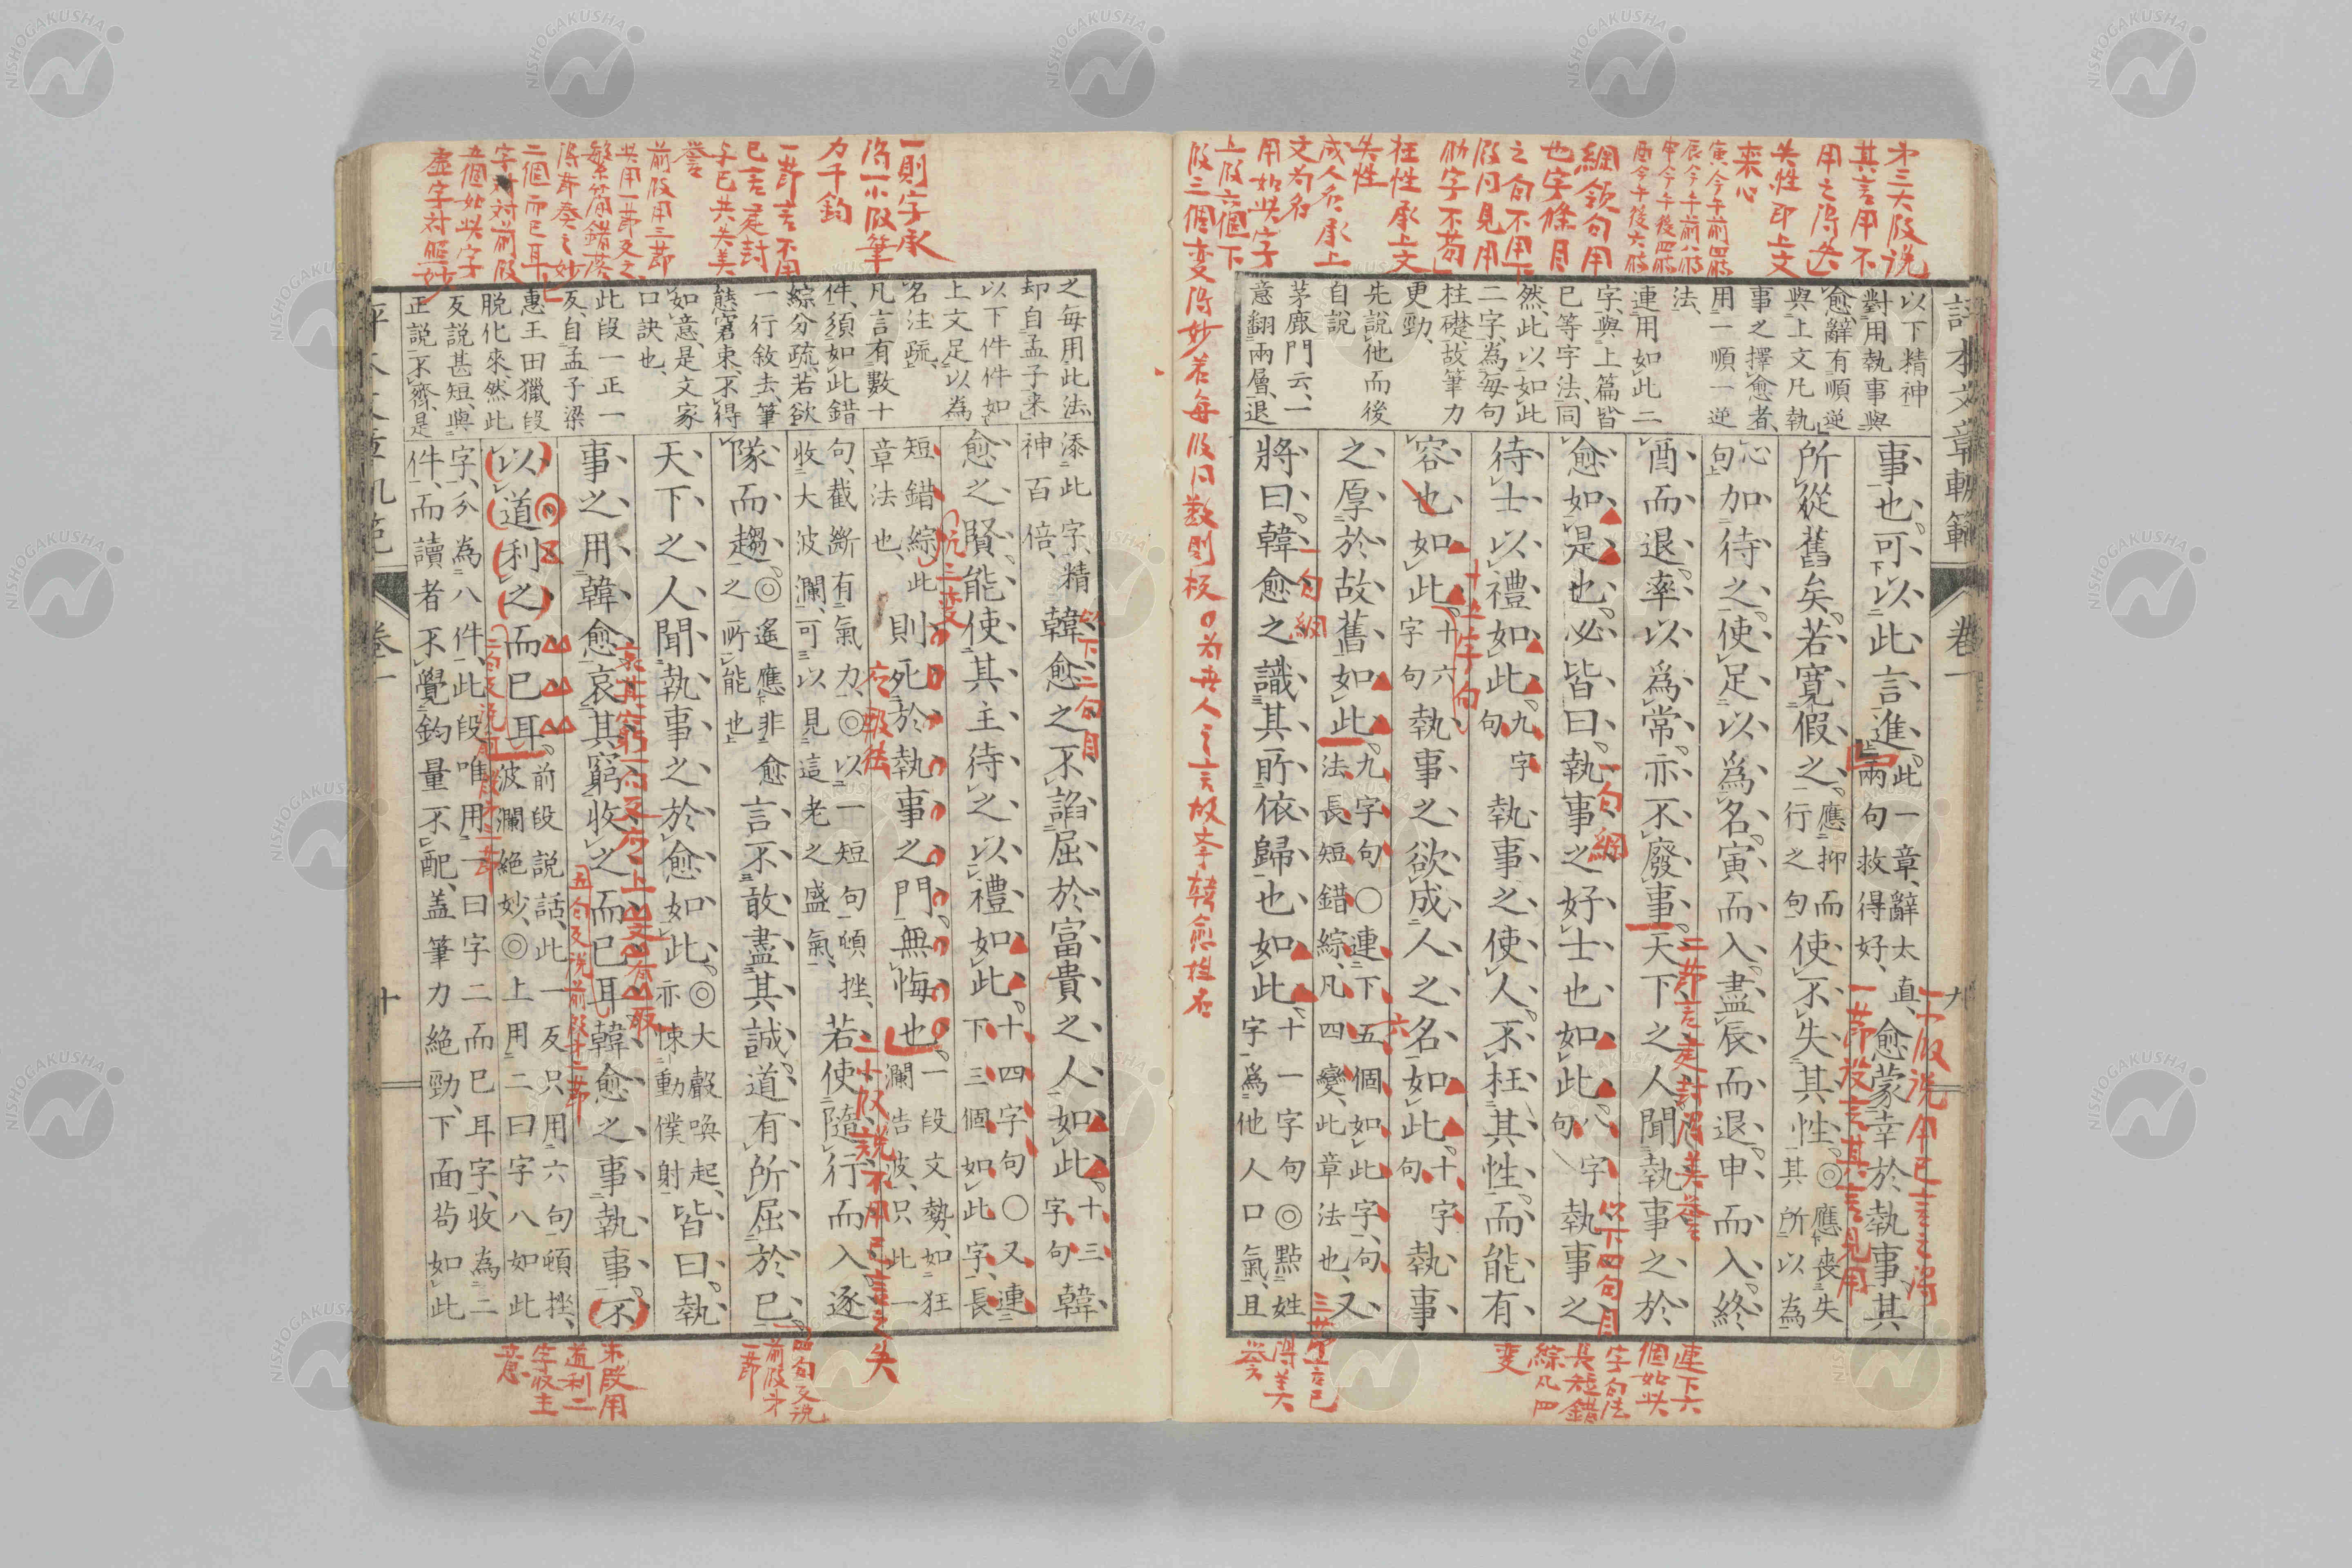 評本文章軌範 卷一 九
才三大段说
其言用不
用之得失
失性即上文
來心
寅今午前四時
辰今午前八時
申今午後四時
酉今午後六時
綱領句用
也字條目
之句不用
段同見用
助字不苟
枉性承上文
失性
成人名承上
文为名
用如此字
上段六個下
段三個変得妙若每段同数則板
以下精神
對用執事與
愈辭有順逆
與上文凡執
事之擇愈者
用一順一逆
法、
連用如此二
字與上篇皆
已等字法同
然此以如此
二字為每句
柱礎故筆力
更勁、
先說他而後
自說
茅鹿門云一
意翻兩層退
事也。可以此言進。此一章、辭太直、兩句救得好、愈蒙幸於執事、其
所從舊矣。若寬假之、應抑而行之句使不失其性。◎應喪失其所以為
心句加待之、使足以爲名。寅而入、盡辰而退、申而入、終
酉而退、率以爲常、亦不廢事。天下之人聞執事之於
愈如是也。必皆曰、執事之好士也如此。八字句執事之
待士以禮如此。九字句執事之使人、不枉其性、而能有
容也如此。十六字句執事之欲成人之名如此。十字句執事
之厚於故舊如此。九字句○連下五個如此字、句法長短錯綜、凡四變、此章法也、又
將曰、韓愈之識其所依歸也如此。十一字句◎點姓字為他人口氣、且
一小段说全已言之得
一節設言其言見用
二節言走封得美誉
一句綱
以下四句目
十五字句
一句綱
六
三節言已
得美
誉
連下六
個如此
字句法
長短錯
綜凡四
変
一則字承
得一小段筆
力千鈞
一節言不用
已言走封
字已共失美
誉
前段用三節
此用一節反之
繁簡錯落
得節奏之妙
二個而已耳
字対対前段
五個如此字
虚字対照妙
之每用此法
却自孟子来
以下件件如
上文足以為
名注疏、
凡言有數十
件須如此錯
綜分疏、若欲
一行敘去、筆
態窘束、不得
如意、是文家
口訣也、
此段一正一
反、自孟子梁
惠王田獵段
脫化來、然此
反說甚短、與
正說不齊、是
添此字、精神百倍、韓愈之不諂屈於富貴之人如此。十三字句韓
愈之賢能、使其主待之以禮如此。十四字句○又連下三個如此字、長
短錯綜此章法也、則死於執事之門無悔也。一段文勢、如狂瀾浩波、只此一
句、截斷有氣力、◎以一短句頓挫、收大波瀾、可以見這老之盛氣、若使隨行而入、逐
隊而趨、◎遙應下非愈之所能也言不敢盡其誠、道有所屈於已。
天下之人聞執事之於愈如此。◎大聲喚起、亦悚動僕射皆曰、執
事之用韓愈、哀其窮、收之而已耳。韓愈之事執事、不
以道、利之而已耳。前段説話、此一反只用六句頓挫、波瀾絕妙、◎上用二曰字八如此
字、分為八件、此段唯用一曰字二而已耳字、收為二
件、而讀者不覺鈞量不配、盖筆力絕勁、下面苟如此
以下三句目
二小段説不用已言之失
四句反说
前段才
一節
五句反说前段才二節
二句反说前段才三節
末段用
道利二
字收主
意
評本文章軌範 卷一 十